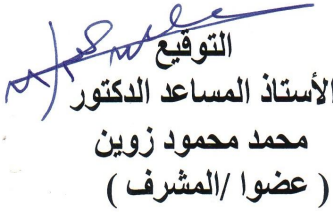 التوقيع
الأستاذ المساعد الدكتور
محمد محمود زوين
( عضوا /المشرف )